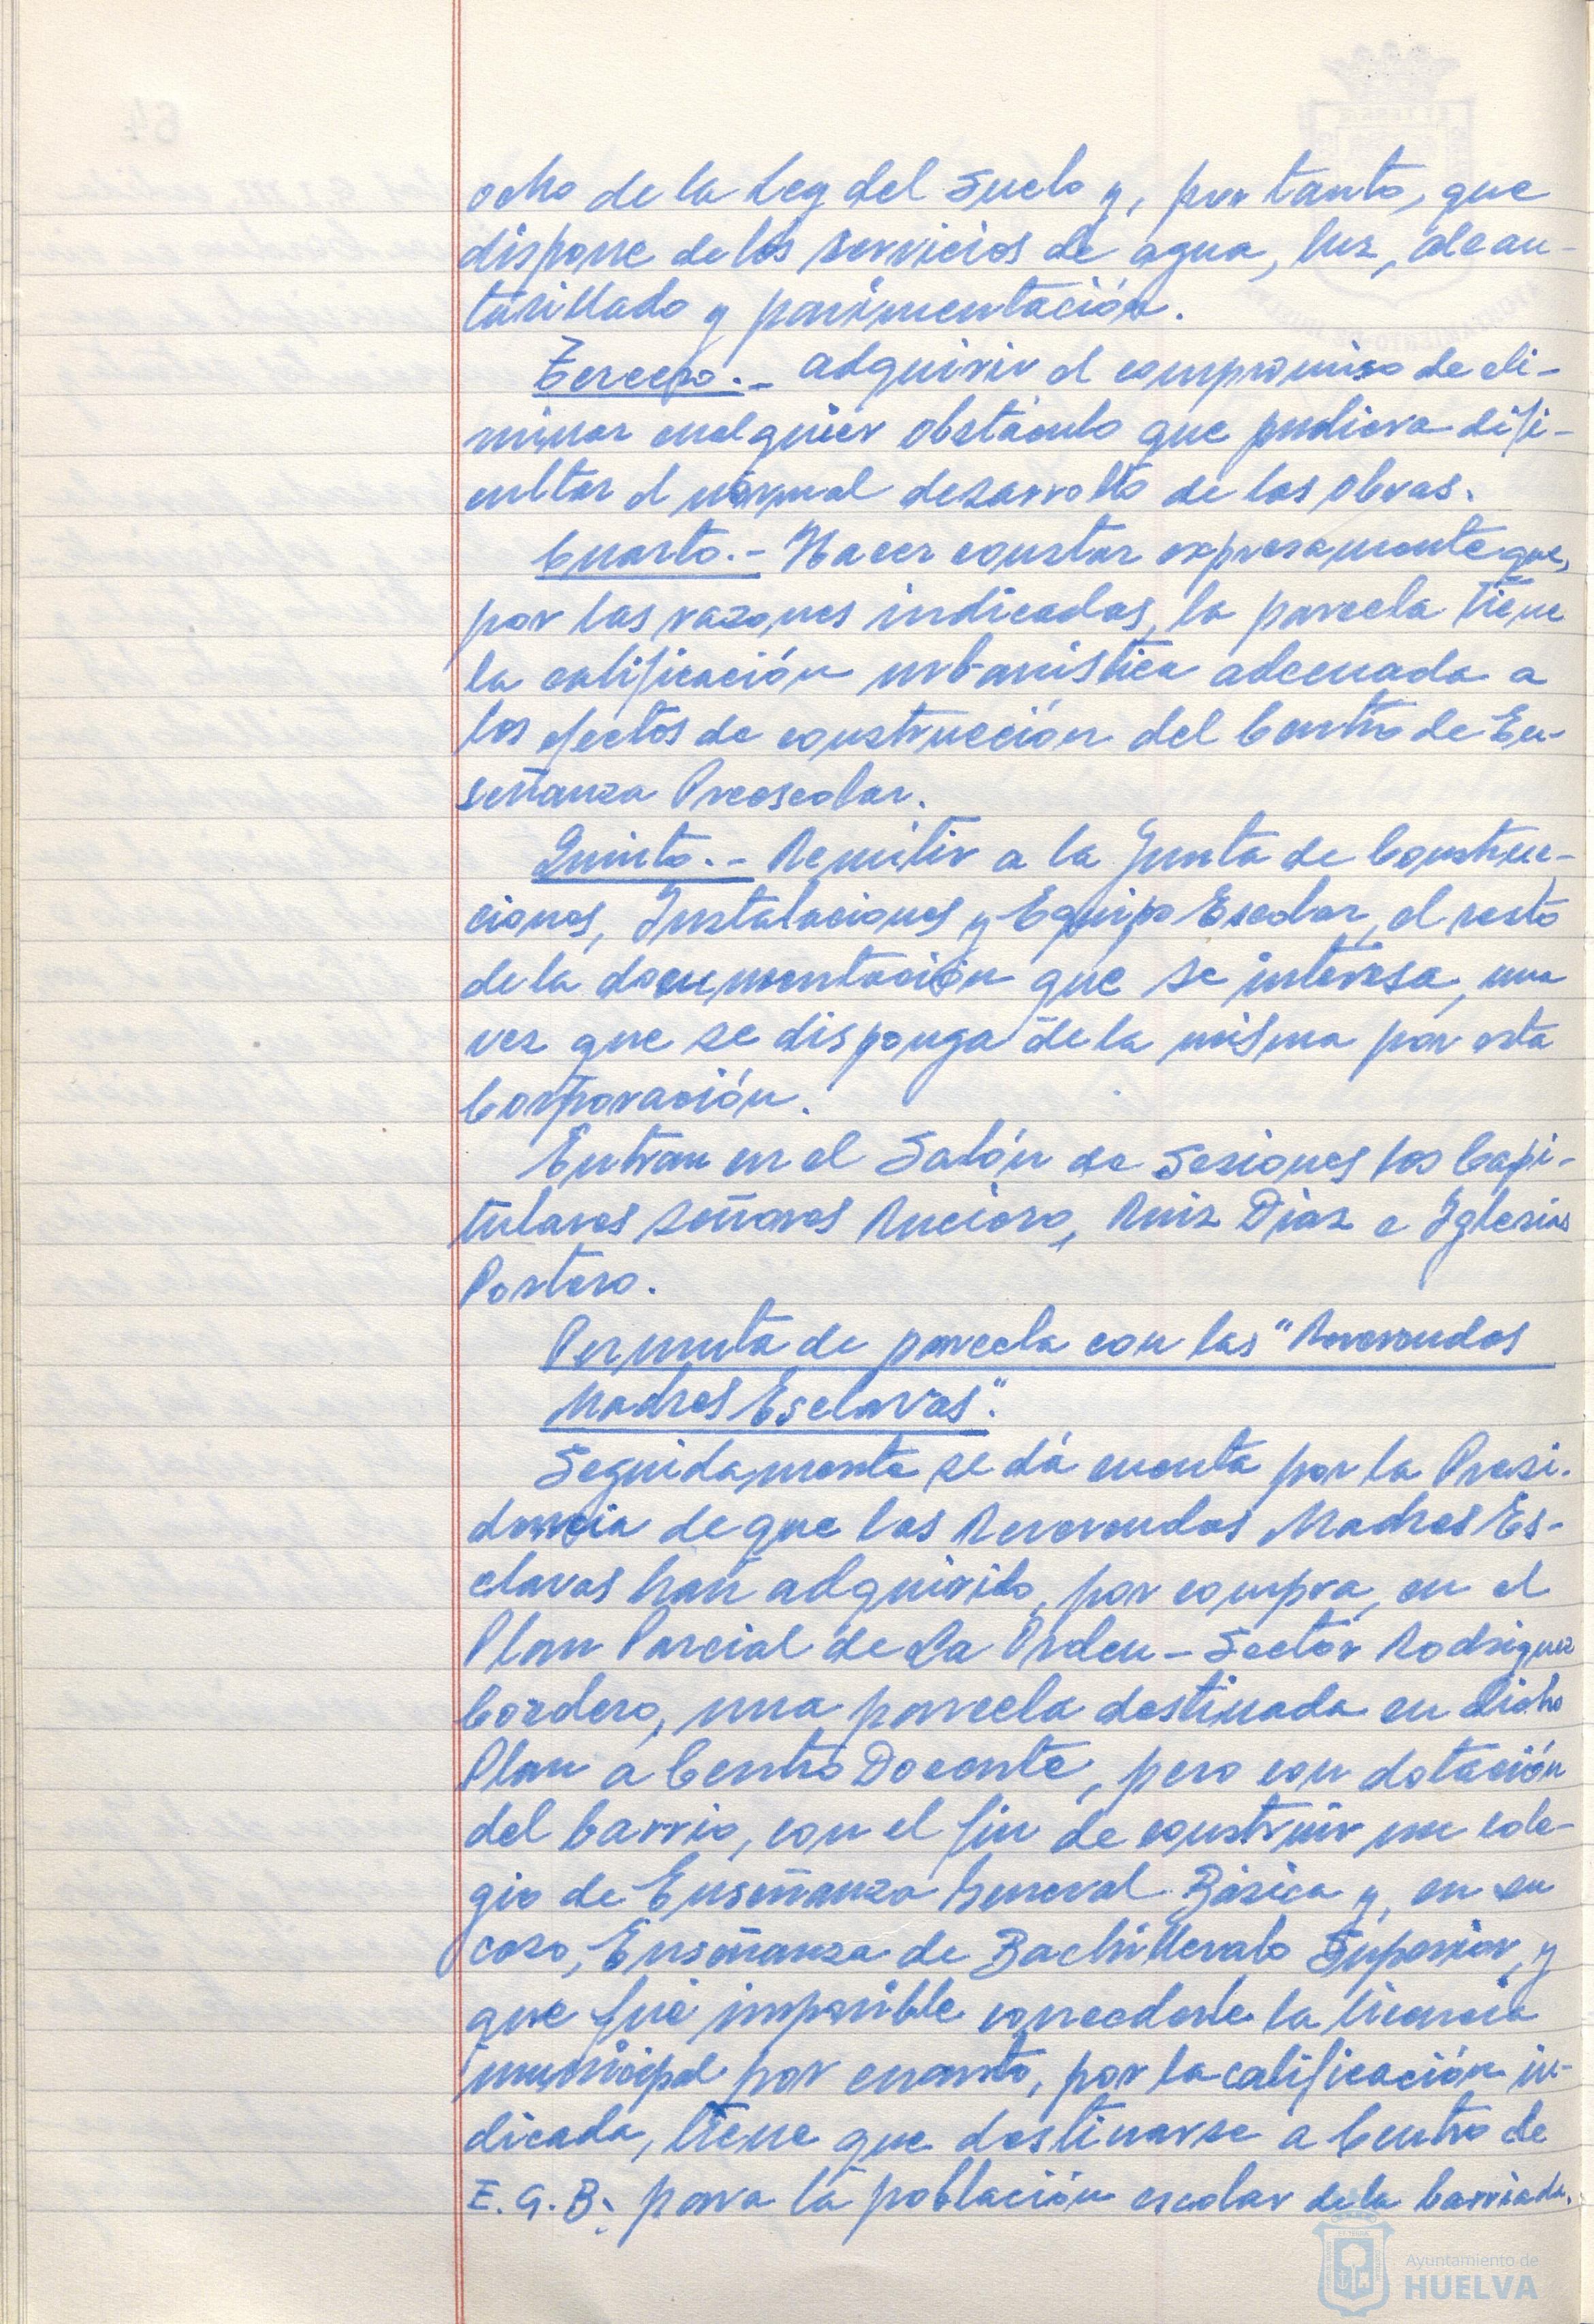 ocho de la Ley del Suelo y, por tanto, que
dispone de los servicios de agua, luz, alcan-
tarillado y pavimentación.
Tercero.- Adquirir el compromiso de eli-
minar cualquier obstáculo que pudiera difi-
cultar el normal desarrollo de las obras.
Cuarto.- Hacer constar expresamente que,
por las razones indicadas, la parcela tiene
la calificación urbanística adecuada a
los efectos de construcción del Centro de En-
señanza Preescolar.
Quinto.- Remitir a la Junta de Construc-
ciones, Instalaciones y Equipo Escolar, el resto
de la documentación que se interesa, una
vez que se disponga de la misma por esta
Corporación.
Entran en el Salón de Sesiones los Capi-
tulares señores Rucioro, Ruiz Díaz e Iglesias
Portero.
Permuta de parcela con las "Reverendas
Madres Esclavas".
Seguidamente se dá cuenta por la Presi-
dencia de que las Reverendas Madres Es-
clavas han adquirido, por compra, en el
Plan Parcial de La Orden - Sector Rodriguez
Cordero, una parcela destinada en dicho
Plan a Centro Docente, pero con dotación
del barrio, con el fin de construir un cole-
gio de Enseñanza General Básica y, en su
caso, Enseñanza de Bachillerato Superior, y
que fué imposible concederle la licencia
municipal por cuanto, por la calificación in-
dicada, tiene que destinarse a Centro de
E.G.B. para la población escolar de la barriada.
Ayuntamiento de
HUELVA